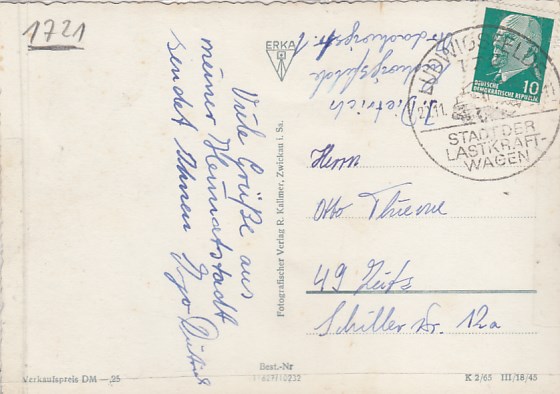 1721
Viele Grüße aus
meiner Heimatstadt
sendet Ihnen Ingo Dietrich
ERKA
Fotografischer Verlag R. Kallmer, Zwickau i. Sa.
J. Dietrich
Ludwigsfelde
LUDWIGSFELDE
STADT DER
LASTKRAFT-
WAGEN
10
DEUTSCHE
DEMOKRATISCHE REPUBLIK
Herrn
Otto Thieme
49 Zeitz
Schiller Str. 12a
Verkaufspreis DM —,25
Best.-Nr
K 2/65 III/18/45